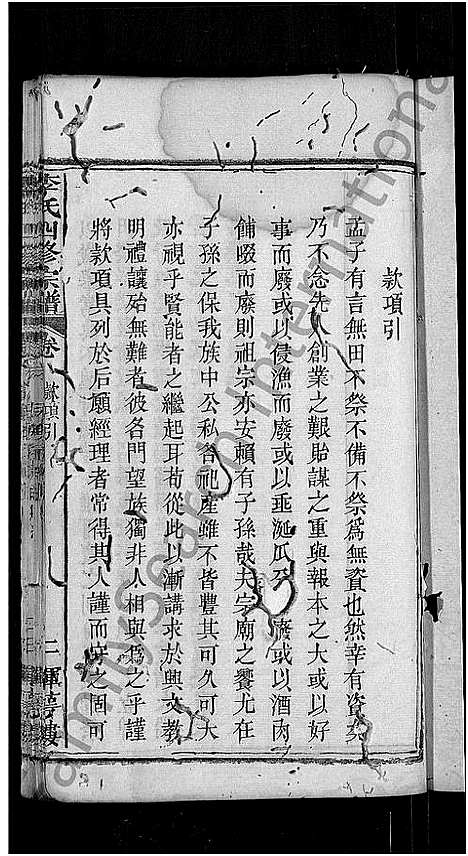 款項引
孟子有言無田不祭不備不祭爲無資也然幸有資矣
乃不念先人創業之艱貽謀之重與報本之大或以好
事而廢或以侵漁而廢或以垂涎瓜 廢或以酒肉
餔啜而廢則祖宗亦安賴有子孫哉夫宗廟之饗尤在
子孫之保我族中公私各祀產雖不皆豐其可久可大
亦視乎賢能者之繼起耳苟從此以漸講求於興文教
明禮讓殆無難者彼各門望族獨非人相與爲之乎謹
將款項具列於后願經理者常得其人謹而 之固可
李氏四修宗譜 卷八 款項引 二
FamilySearch International